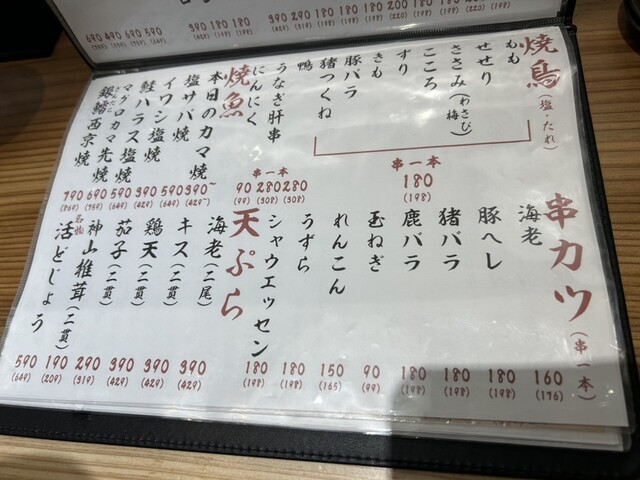 焼鳥(塩・たれ)
もも
せせり
ささみ(わさび・梅)
こころ
ずり
きも
豚バラ
猪つくね
串一本
180
(198)
鴨
280
(308)
うなぎ肝串
280
(308)
にんにく
90
(99)
串一本
焼魚
本日のカマ焼
390~
(429~)
塩サバ焼
590
(649)
イワシ塩焼
390
(429)
鮭ハラス塩焼
590
(649)
マグロカマ先焼
690
(759)
銀鱈西京焼
790
(869)
串カツ(串一本)
海老
160
(176)
豚ヘレ
180
(198)
猪バラ
180
(198)
鹿バラ
180
(198)
玉ねぎ
90
(99)
れんこん
150
(165)
うずら
180
(198)
シャウエッセン
180
(198)
天ぷら
海老(二尾)
390
(429)
キス(二貫)
390
(429)
鶏天(二貫)
390
(429)
茄子(二貫)
290
(319)
神山椎茸(二貫)
190
(209)
名物
活どじょう
590
(649)